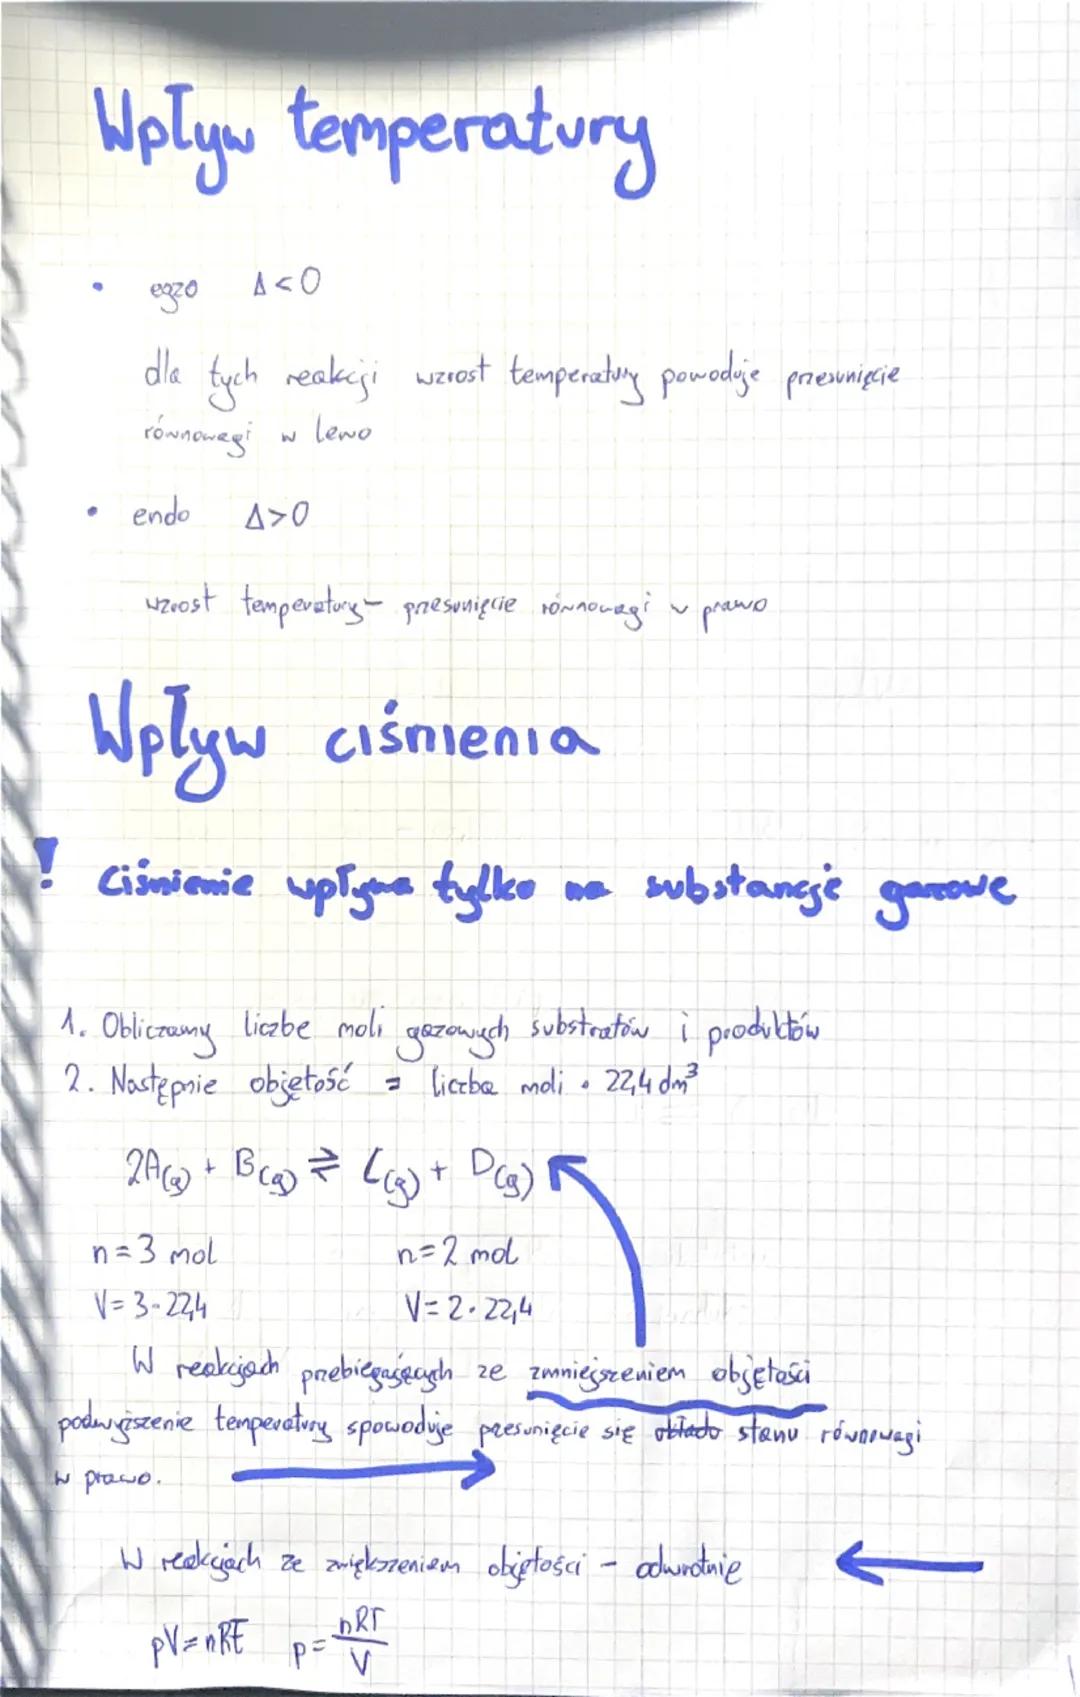 Wpływ temperatury
• egzo Δ<0
dla tych reakcji wzrost temperatury powoduje przesunięcie
równowagi w lewo
• endo Δ>0
wzrost temperatury - przesunięcie równowagi w prawo
Wpływ ciśnienia
! Ciśnienie wpływa tylko na substancje gazowe
1. Obliczamy liczbe moli gazowych substratów i produktów
2. Następnie objętość = liczba moli · 22,4 dm³
2A(g) + B(g) ⇌ C(g) + D(g)
n = 3 mol n = 2 mol
V = 3 · 22,4 V = 2 · 22,4
W reakcjach przebiegających ze zmniejszeniem objętości
podwyższenie temperatury spowoduje przesunięcie się układu stanu równowagi
w prawo.
W reakcjach ze zwiększeniem objętości - odwrotnie
pV = nRT p = nRT/V